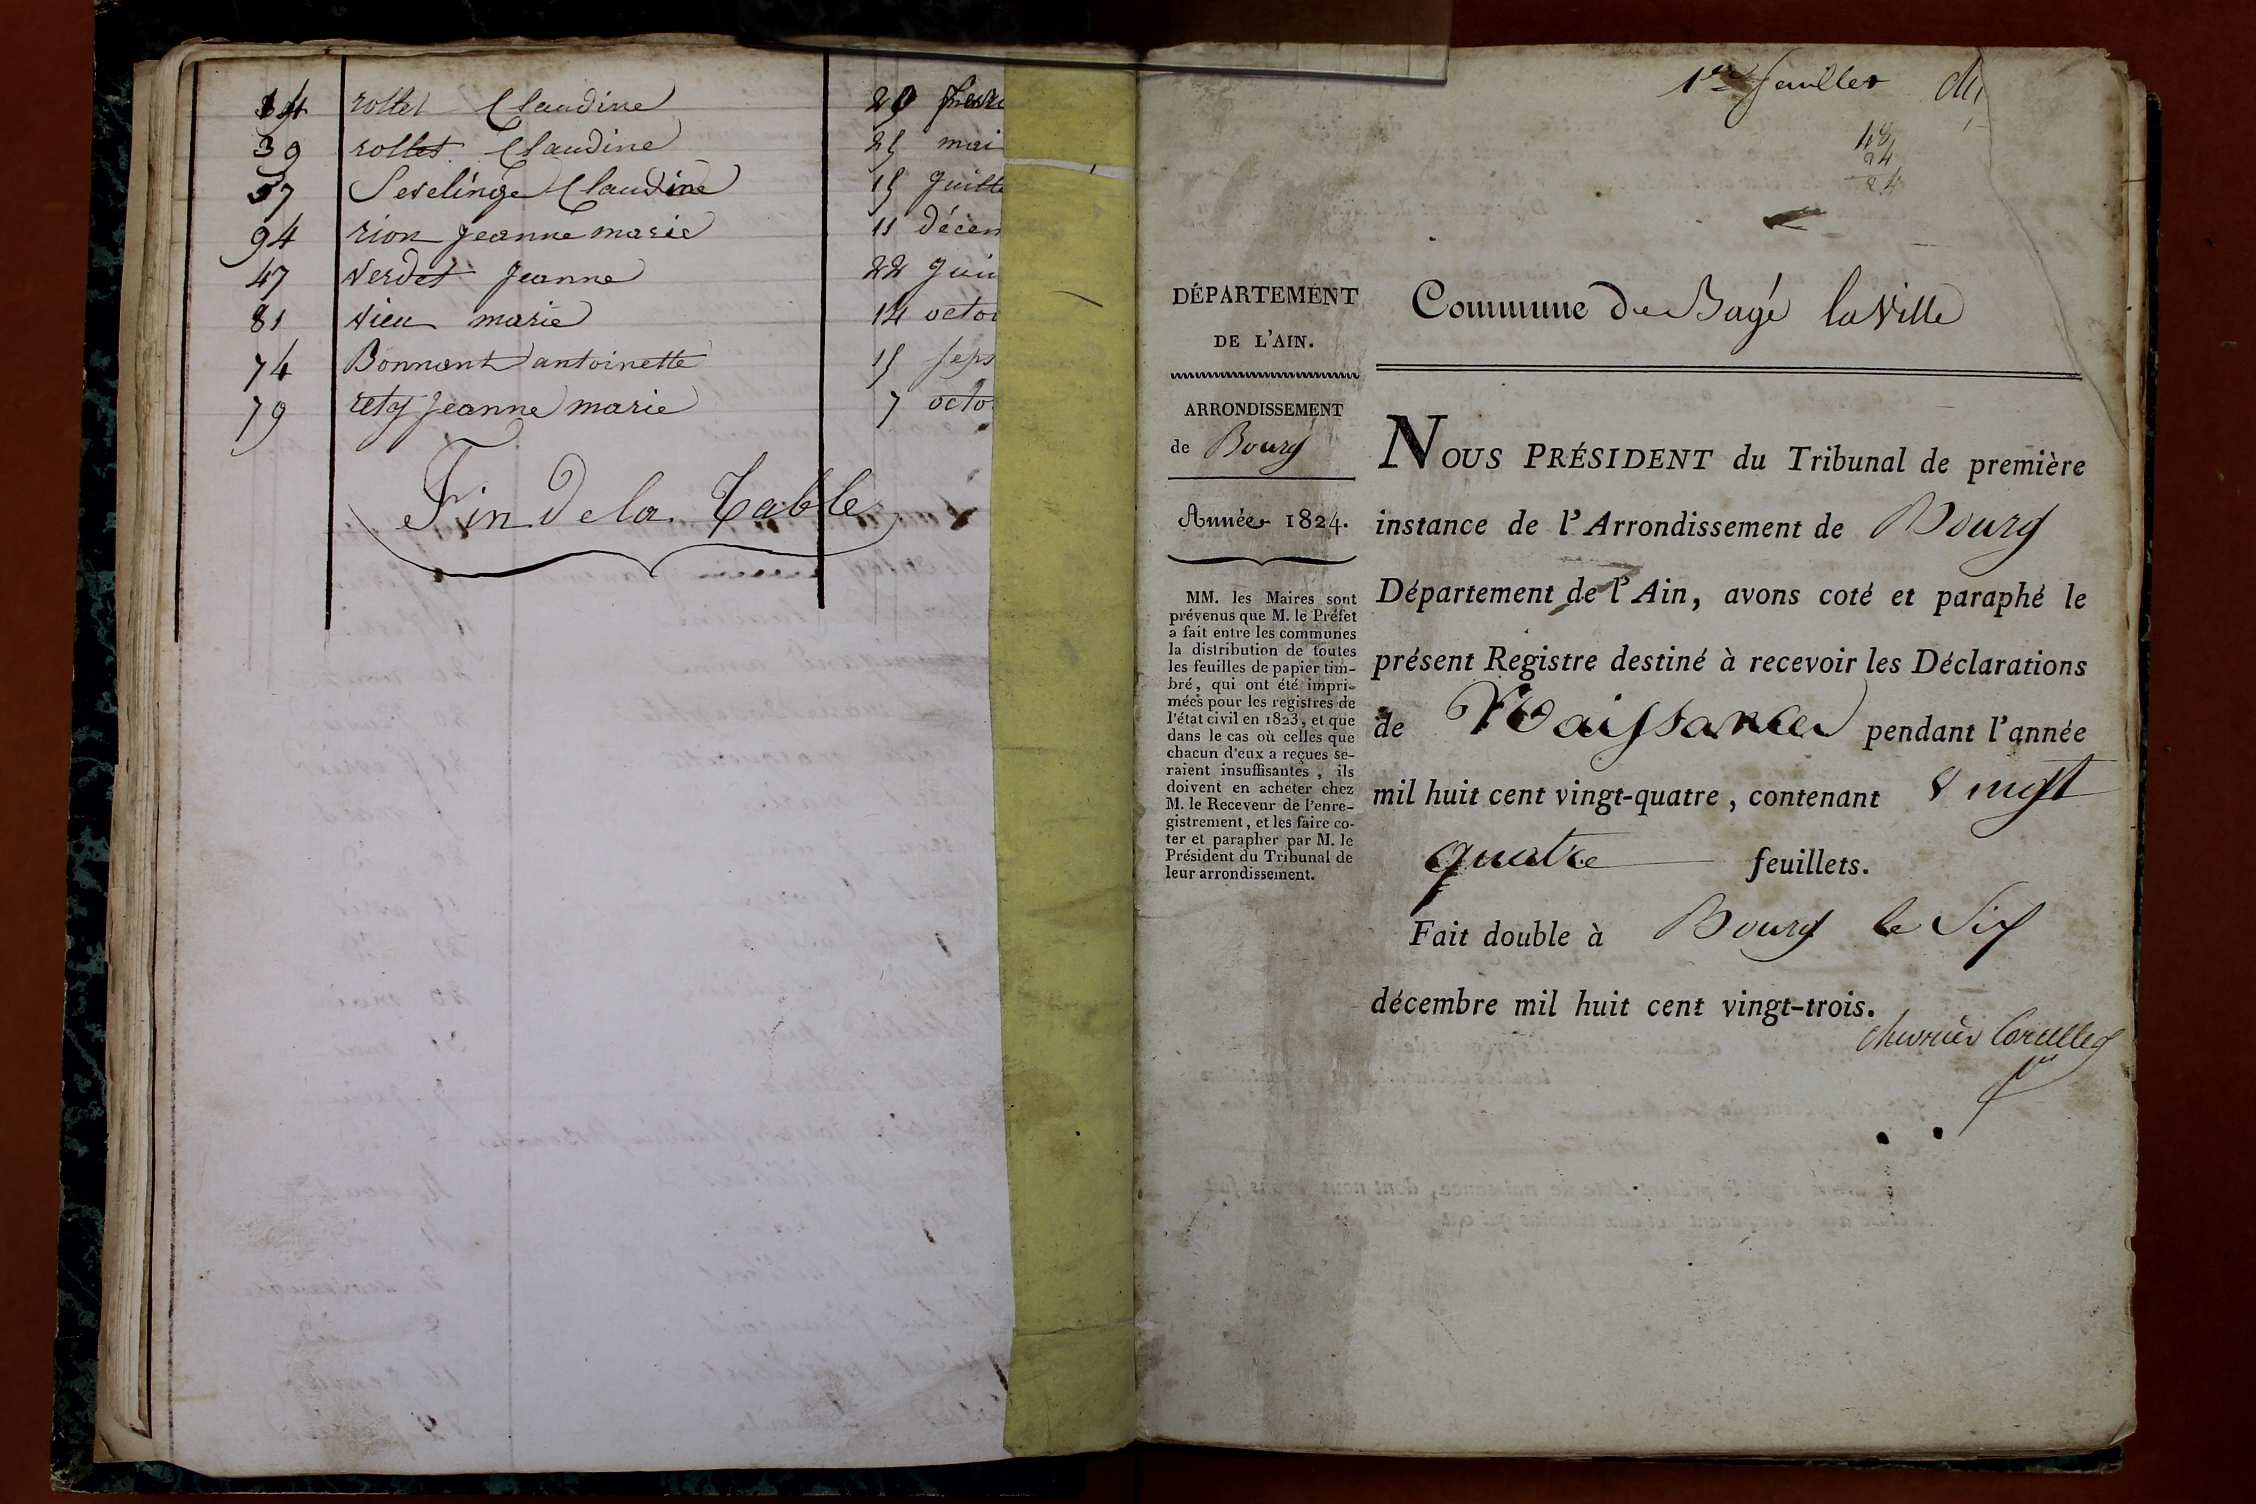 14 rollet Claudine 29
39 rollet Claudine 25 mai
57 Sevelinge Claudine 15 Juille
94 rion Jeanne marie 11 décem
47 verdet Jeanne 22 Juin
81 vieu marie 14 octo
74 Bonnant antoinette 15 Sep
79 rety Jeanne marie 7 octo
Fin De la Table
1er feuillet
48
24
24
Commune De Bagé la Ville
DÉPARTEMENT
DE L'AIN.
ARRONDISSEMENT
de Bourg
Année 1824.
MM. les Maires sont
prévenus que M. le Préfet
a fait entre les communes
la distribution de toutes
les feuilles de papier tim-
bré, qui ont été impri-
mées pour les registres de
l'état civil en 1823, et que
dans le cas où celles que
chacun d'eux a reçues se-
raient insuffisantes, ils
doivent en acheter chez
M. le Receveur de l'enre-
gistrement, et les faire co-
ter et parapher par M. le
Président du Tribunal de
leur arrondissement.
NOUS PRÉSIDENT du Tribunal de première
instance de l'Arrondissement de Bourg
Département de l'Ain, avons coté et paraphé le
présent Registre destiné à recevoir les Déclarations
de Naissances pendant l'année
mil huit cent vingt-quatre, contenant vingt
quatre feuillets.
Fait double à Bourg le Six
décembre mil huit cent vingt-trois.